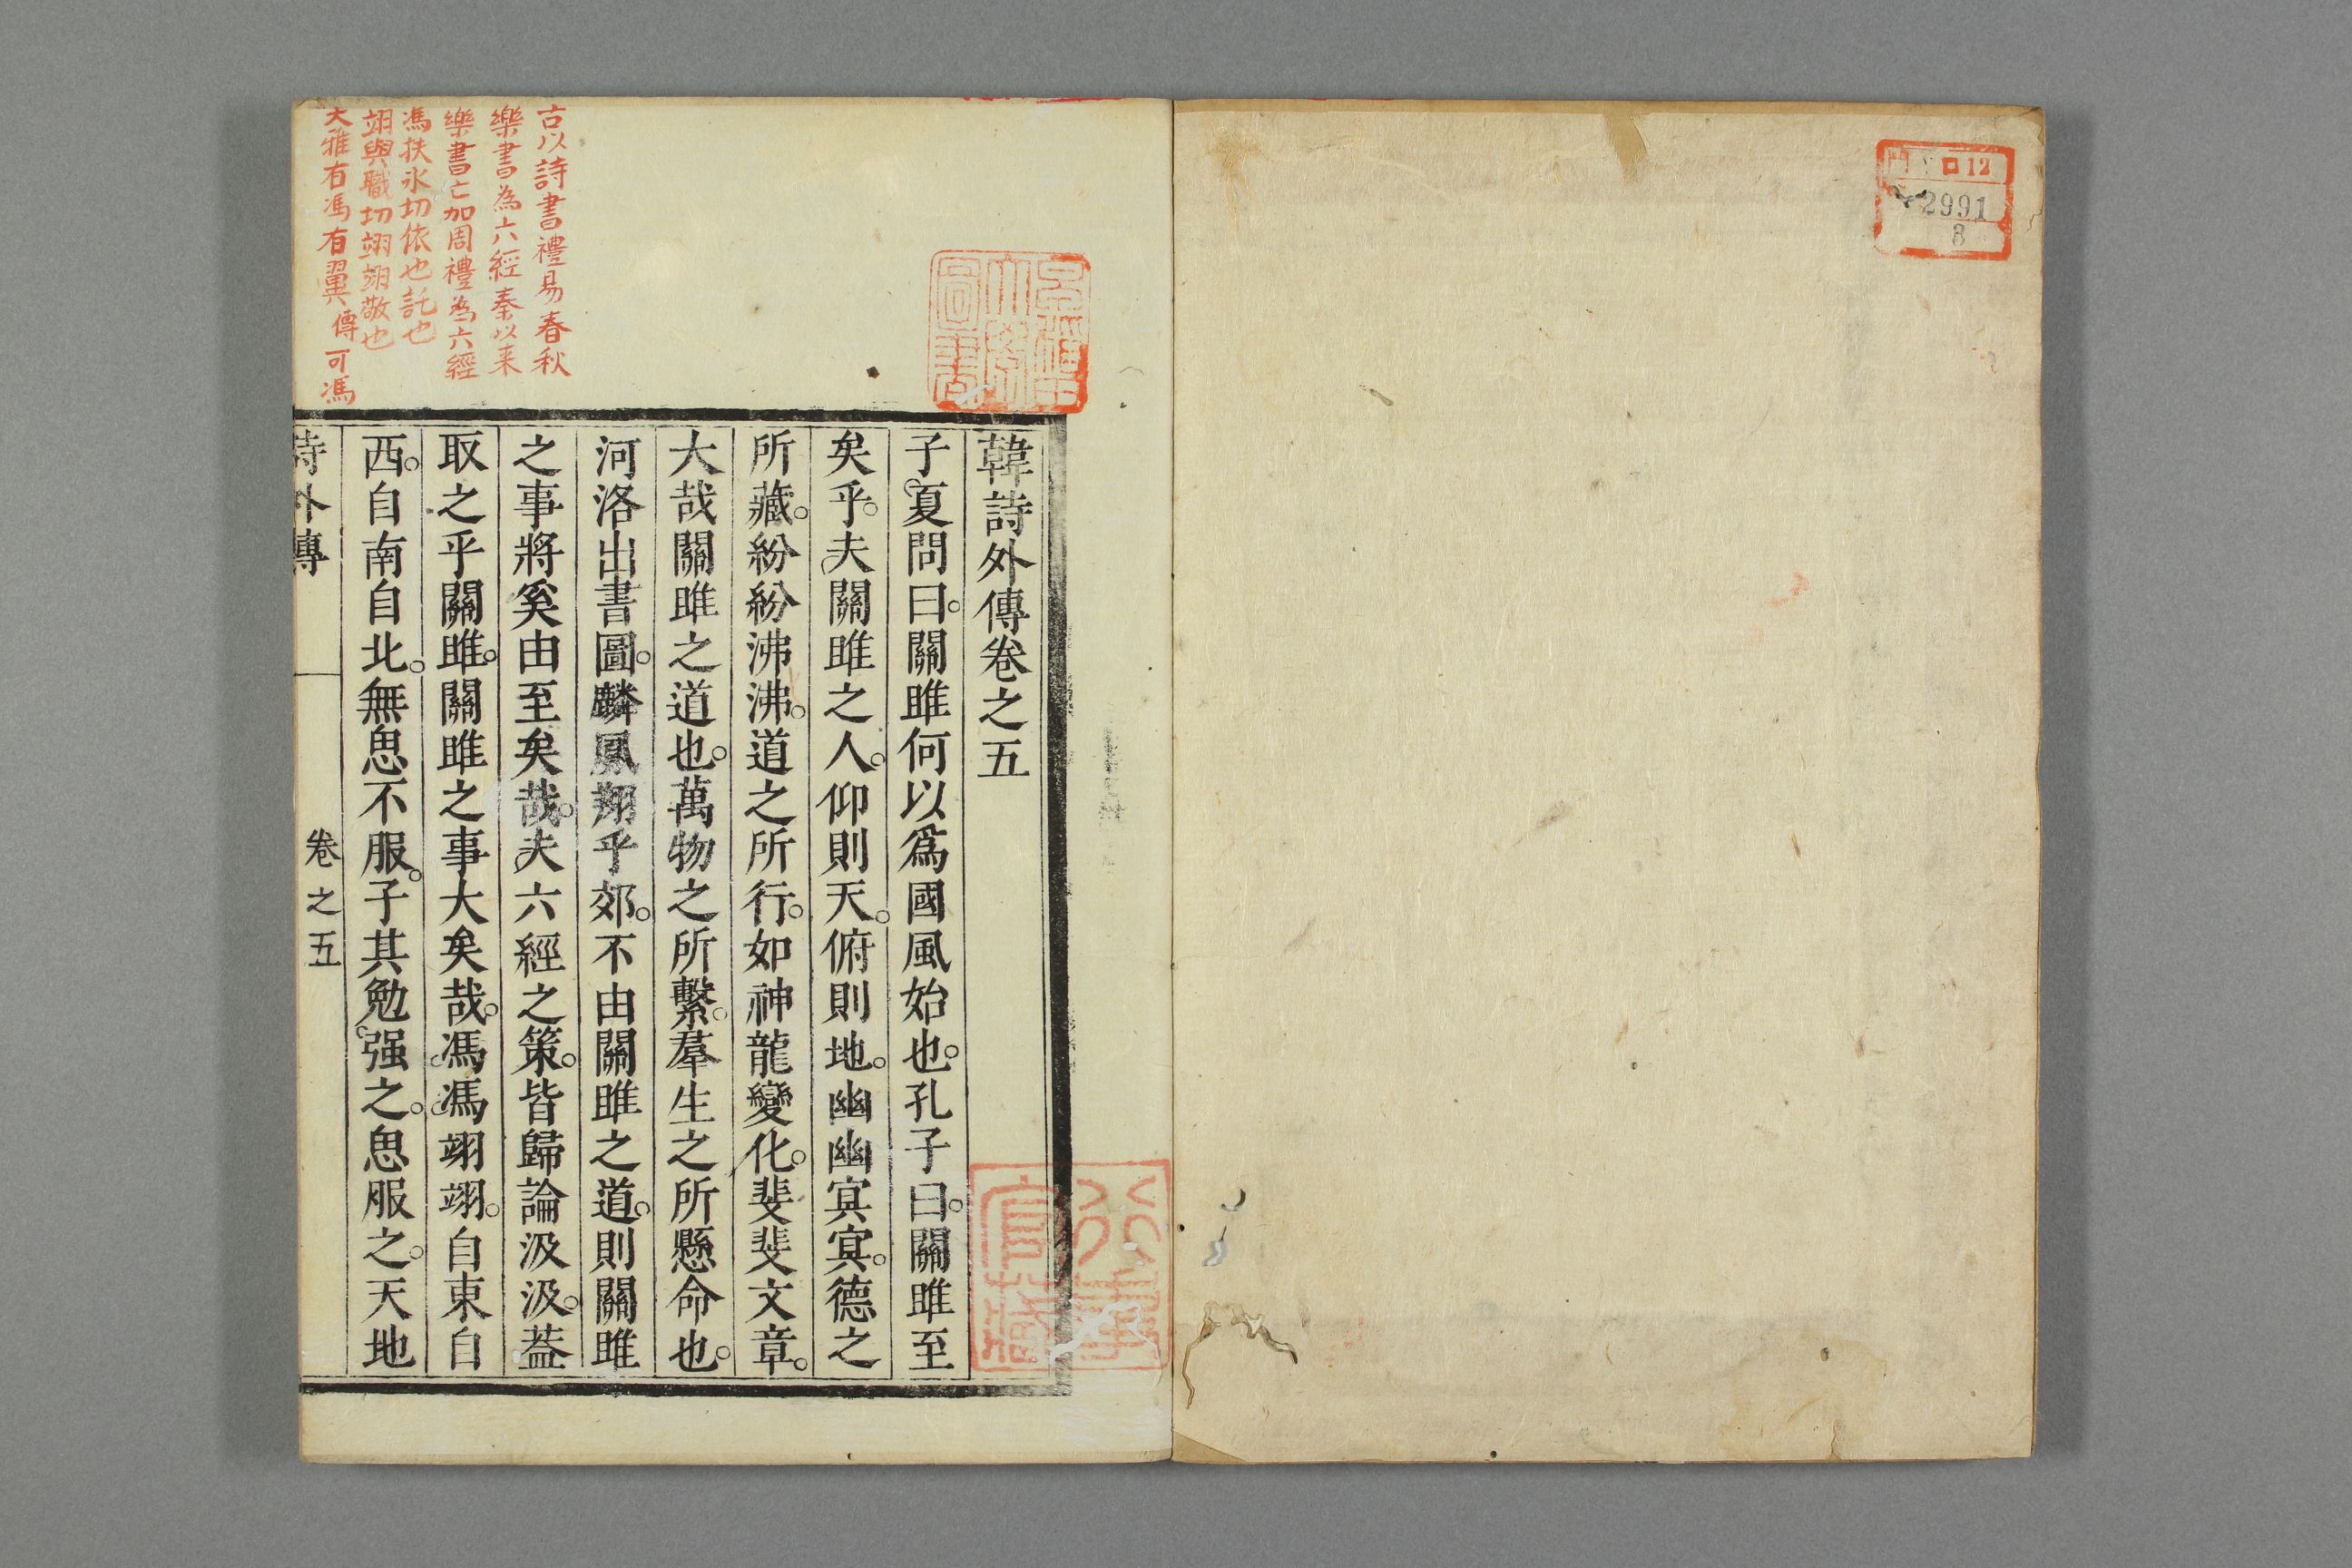 門 口12
2991
8
古以詩書禮易春秋
樂書為六經秦以来
樂書亡加周禮為六經
馮扶氷切依也託也
翊與職切翊翊敬也
大雅有馮有翼傳可馮
韓詩外傳卷之五
子夏問曰。關雎何以爲國風始也。孔子曰。關雎至
矣乎。夫關雎之人。仰則天。俯則地。幽幽㝠㝠。德之
所藏。紛紛沸沸。道之所行。如神龍變化。斐斐文章。
大哉關雎之道也。萬物之所繫。羣生之所懸命也。
河洛出書圖。麟鳳翔乎郊。不由關雎之道。則關雎
之事將奚由至矣哉。夫六經之策。皆歸論汲汲。葢
取之乎關雎。關雎之事大矣哉。馮馮翊翊。自東自
西。自南自北。無思不服。子其勉强之。思服之。天地
詩外傳 卷之五